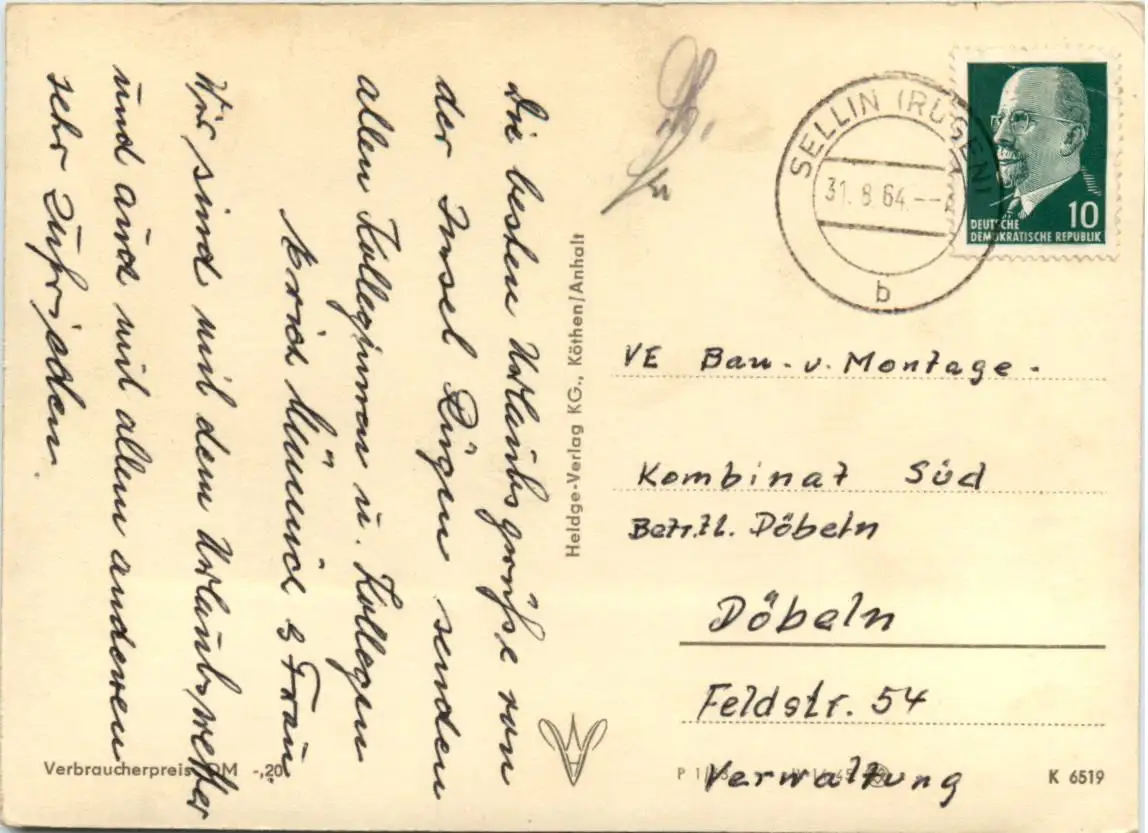 Die besten Urlaubsgrüße von
der Insel Rügen senden
allen Kolleginnen u. Kollegen
Erich Münnich & Frau.
Wir sind mit dem Urlaubswetter
und auch mit allem anderen
sehr zufrieden.
Heldge-Verlag KG., Köthen/Anhalt
SELLIN (RÜGEN)
31. 8. 64.--
b
10
DEUTSCHE
DEMOKRATISCHE REPUBLIK
VE Bau- u. Montage-
Kombinat Süd
Betr.tl. Döbeln
Döbeln
Feldstr. 54
Verwaltung
Verbraucherpreis DM -,20
K 6519